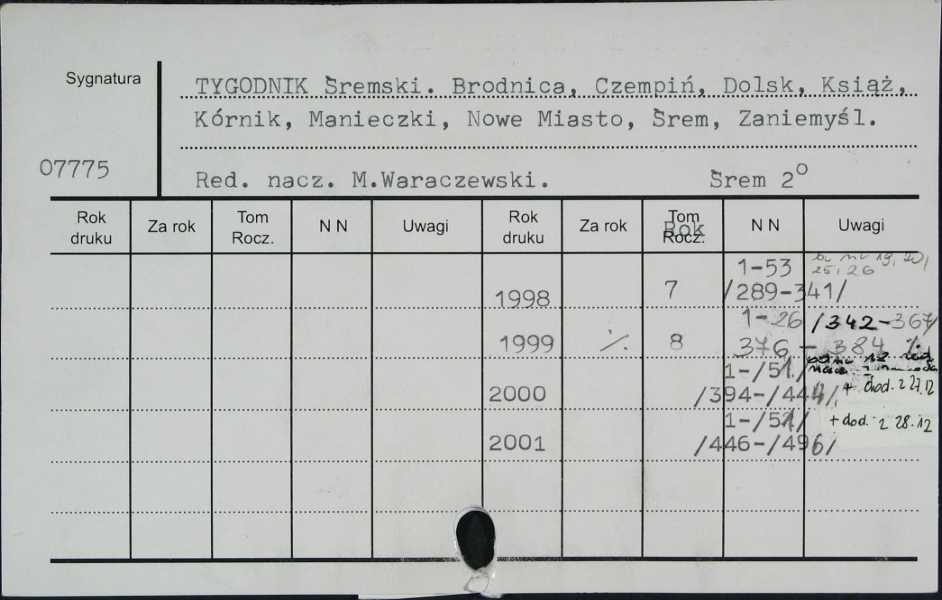 Sygnatura
TYGODNIK Śremski. Brodnica, Czempiń, Dolsk, Książ,
Kórnik, Manieczki, Nowe Miasto, Śrem, Zaniemyśl.
07775
Red. nacz. M.Waraczewski. Śrem 2°
Rok druku Za rok Tom Rocz. N N Uwagi Rok druku Za rok Tom Rok Rocz. N N Uwagi
1998 7 1-53 /289-341/ 19, 20, 25, 26
1999 ·/. 8 1-26 /342-367/
376 - 384
2000 1-/51/ /394-/444/, + dod. z 27.12
2001 1-/51/ /446-/496/ + dod. z 28.12